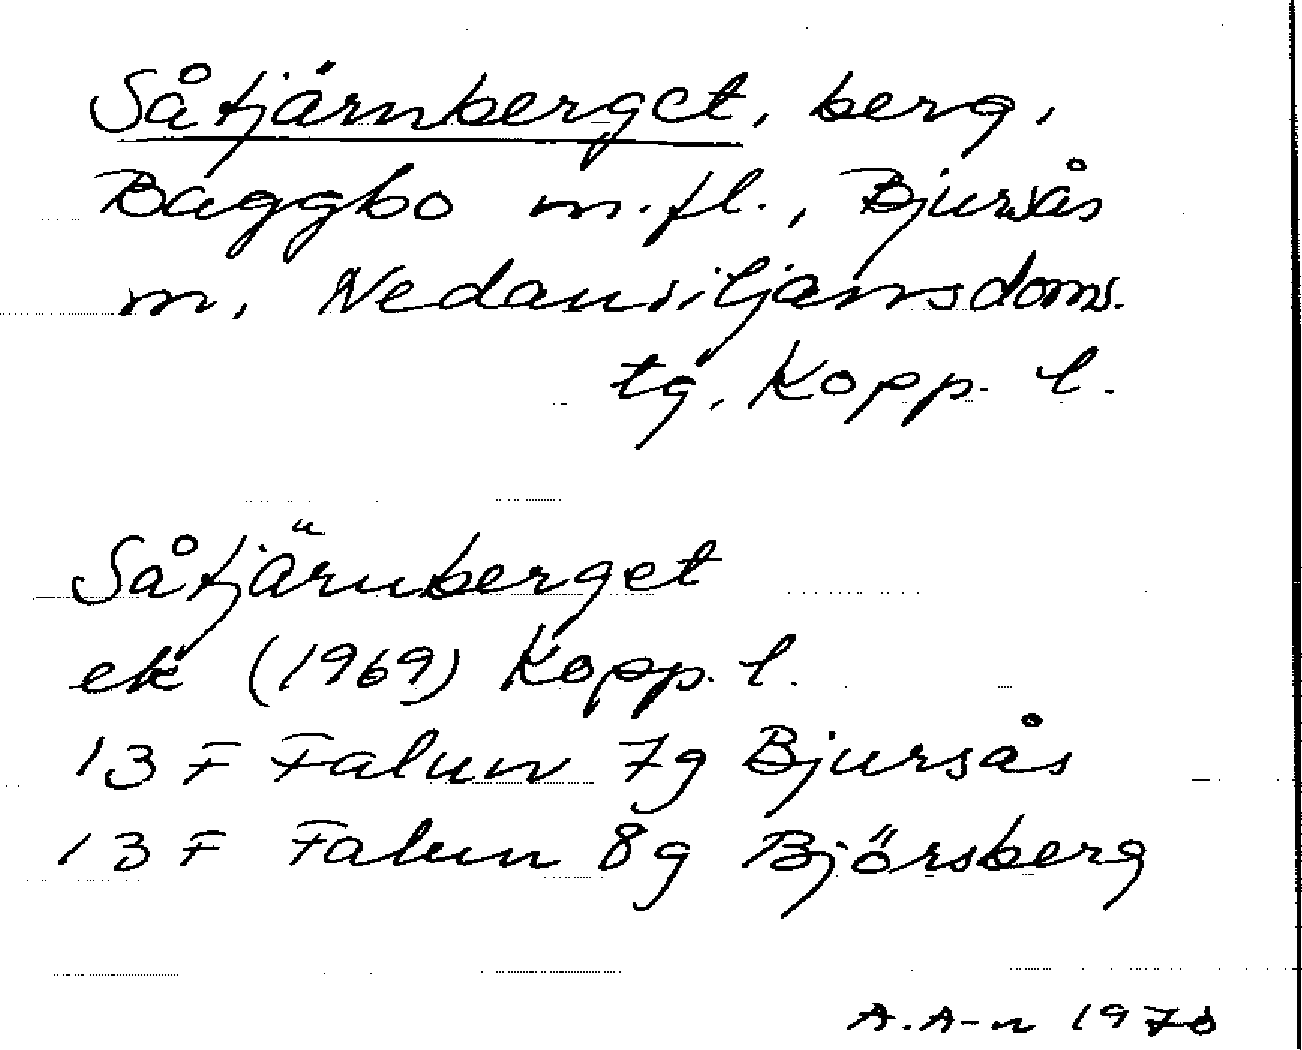 Såtjärnberget, berg,
Baggbo m.fl., Bjursås
m, Nedansiljansdoms.
tg, Kopp. l.
Såtjärnberget
ek (1969) Kopp. l.
13 F Falun 7g Bjursås
13 F Falun 8g Björsberg
A.A-n 1970